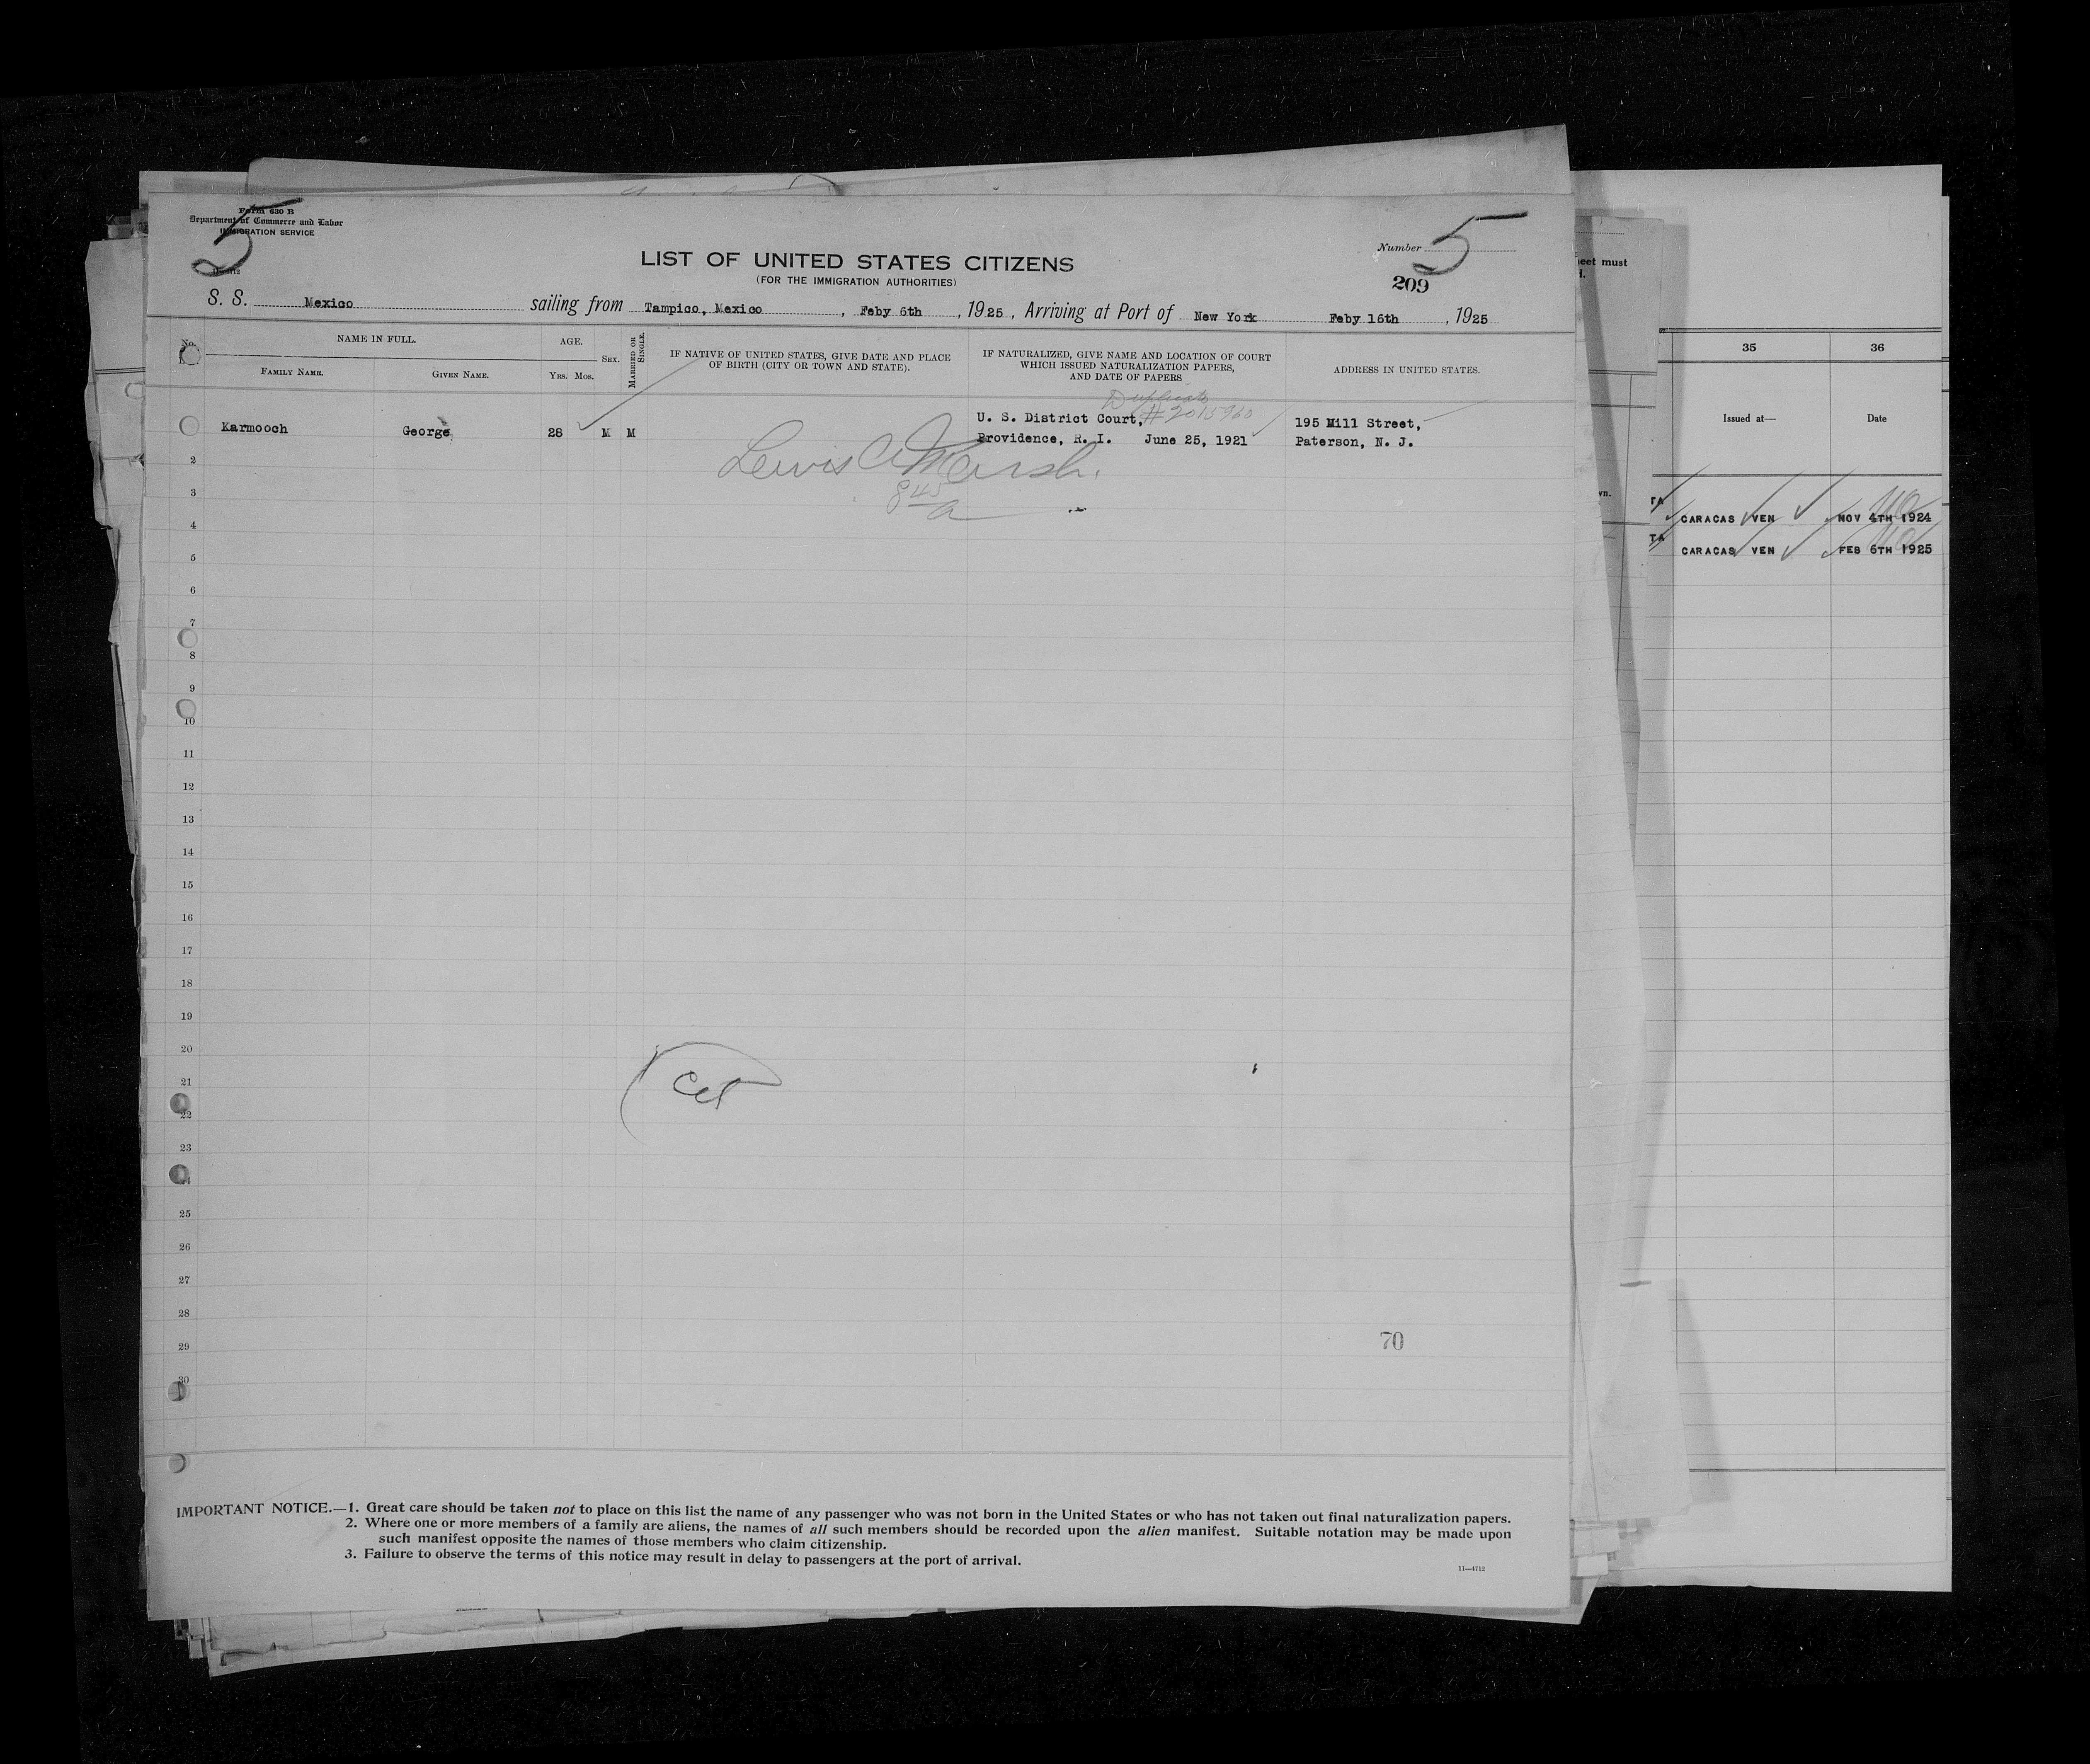 5
Form 630 B
Department of Commerce and Labor
IMMIGRATION SERVICE
Number 5
209
LIST OF UNITED STATES CITIZENS
(FOR THE IMMIGRATION AUTHORITIES)
S. S. Mexico sailing from Tampico, Mexico, Feby 6th, 1925, Arriving at Port of New York Feby 16th, 1925
No. NAME IN FULL. AGE. SEX. MARRIED OR SINGLE. IF NATIVE OF UNITED STATES, GIVE DATE AND PLACE OF BIRTH (CITY OR TOWN AND STATE). IF NATURALIZED, GIVE NAME AND LOCATION OF COURT WHICH ISSUED NATURALIZATION PAPERS, AND DATE OF PAPERS ADDRESS IN UNITED STATES.
FAMILY NAME. GIVEN NAME. YRS. MOS.
Duplicate
#2015960
Karmooch George 28 M M U. S. District Court, 195 Mill Street,
Providence, R. I. June 25, 1921 Paterson, N. J.
Lewis C Marsh.
845
a
2
3
4
5
6
7
8
9
10
11
12
13
14
15
16
17
18
19
20
21
22
23
25
26
27
28
29
30
70
IMPORTANT NOTICE.—1. Great care should be taken not to place on this list the name of any passenger who was not born in the United States or who has not taken out final naturalization papers.
2. Where one or more members of a family are aliens, the names of all such members should be recorded upon the alien manifest. Suitable notation may be made upon
such manifest opposite the names of those members who claim citizenship.
3. Failure to observe the terms of this notice may result in delay to passengers at the port of arrival.
11—4712
eet must
35 36
Issued at— Date
CARACAS VEN NOV 4TH 1924
CARACAS VEN FEB 6TH 1925